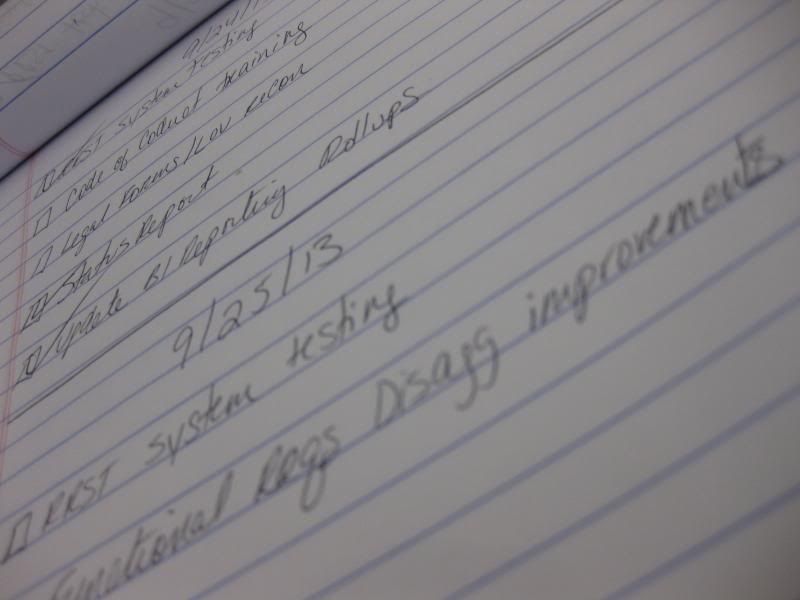 9/24/1
RRST system testing
Code of Conduct training
Legal Forms/Lov recon
Status Report
Update BI Reporting Rollups
9/25/13
RRST system testing
Functional Reqs Disagg improvements